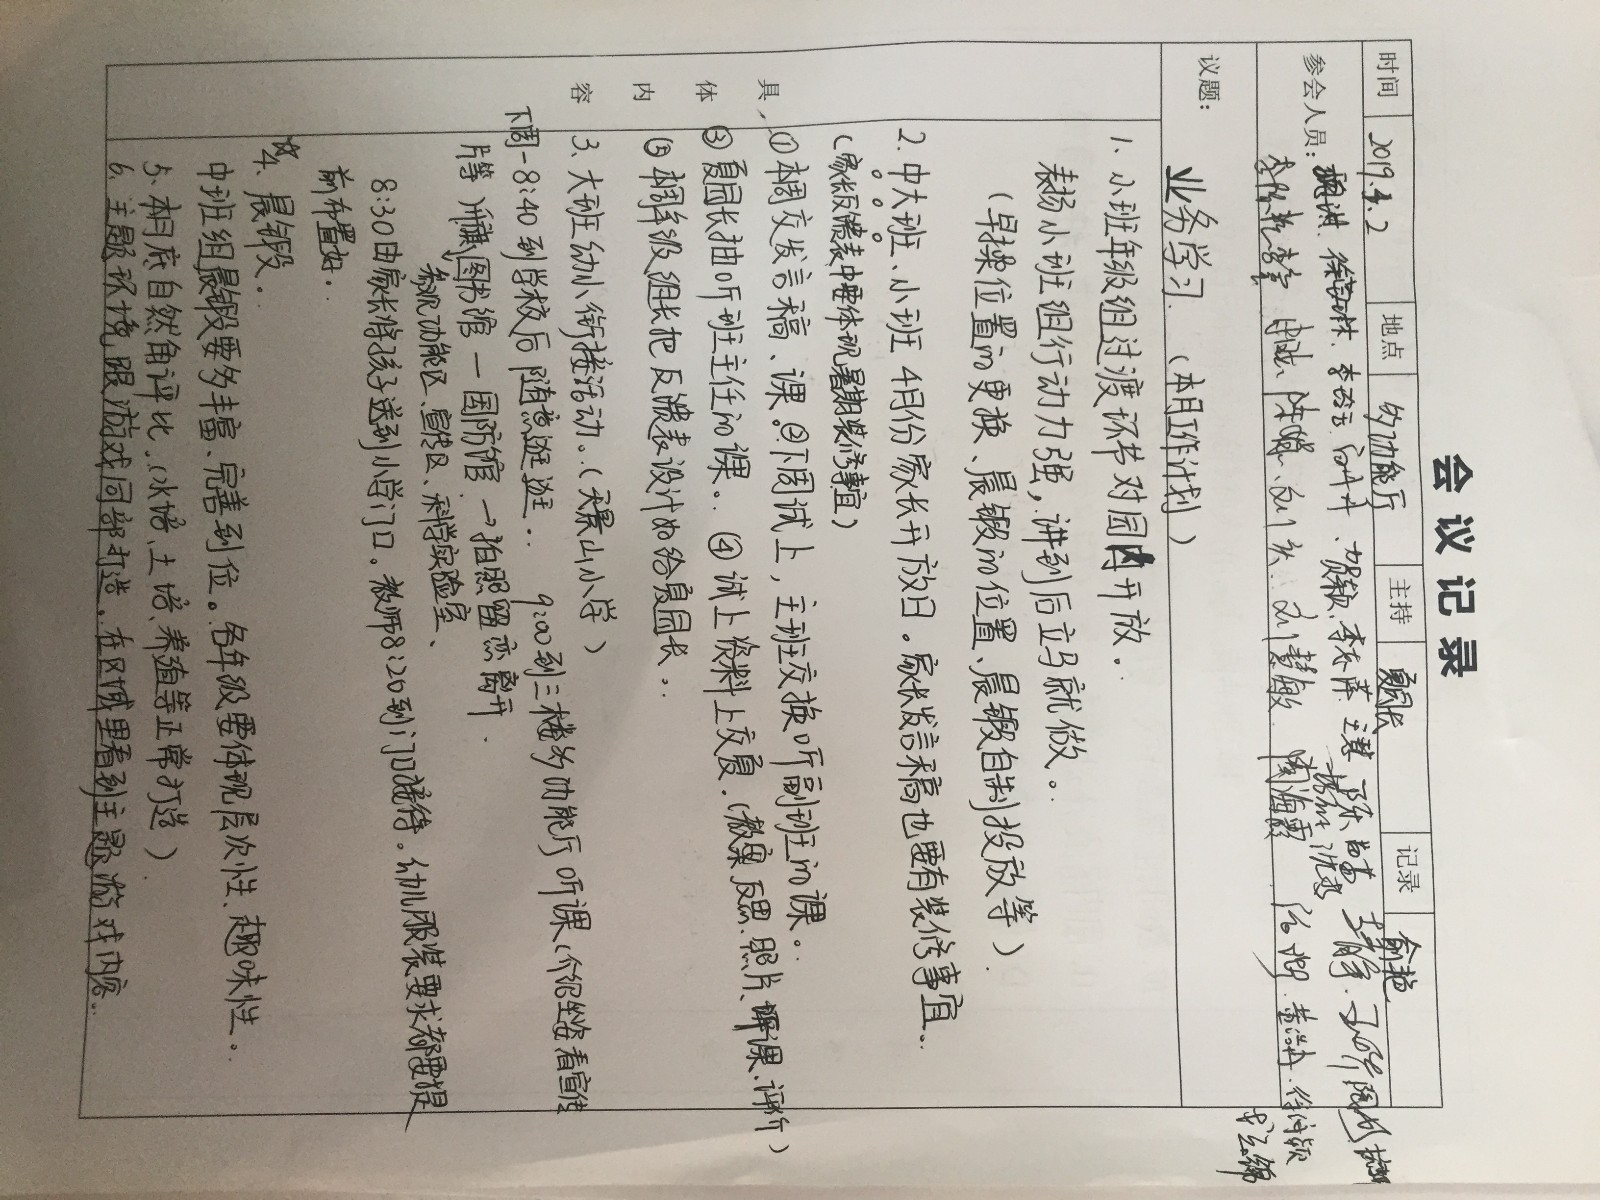 会议记录
时间 2019.4.2 地点 多功能厅 主持 夏园长 记录 俞艳
参会人员：
议题： 业务学习（本月工作计划）
具体内容
1、小班年级组过渡环节对园内开放．
表扬小班组行动力强，讲到后立马就做。
（早操位置的更换、晨锻的位置、晨锻自制投放等）
2、中大班、小班 4月份家长开放日。家长发言稿也要有装修事宜．
（家长反馈表中要体现暑期装修事宜）
①本周交发言稿、课。②下周试上，主班交换听副班的课。
③夏园长抽听班主任的课。④试上资料上交夏．（教案、反思、照片、评课、评价）
⑤本周年级组长把反馈表设计好给夏园长．
3、大班幼小衔接活动。（天景山小学）
下周一8:40到学校后随意逛逛． 9:00到三楼多功能厅听课（介绍坐姿看宣传
片等）图书馆—国防馆→拍照留恋离开．
参观功能区、宣传区、科学实验室、
8:30由家长将孩子送到小学门口。教师8:20到门口接待。幼儿服装要求都要提
前布置好．
☆4、晨锻．
中班组晨锻要多丰富、完善到位。各年级要体现层次性、趣味性．
5、本月底自然角评比．（水培、土培、养殖等正常打造）
6、主题环境跟游戏同部打造．在区域里看到主题游戏内容．